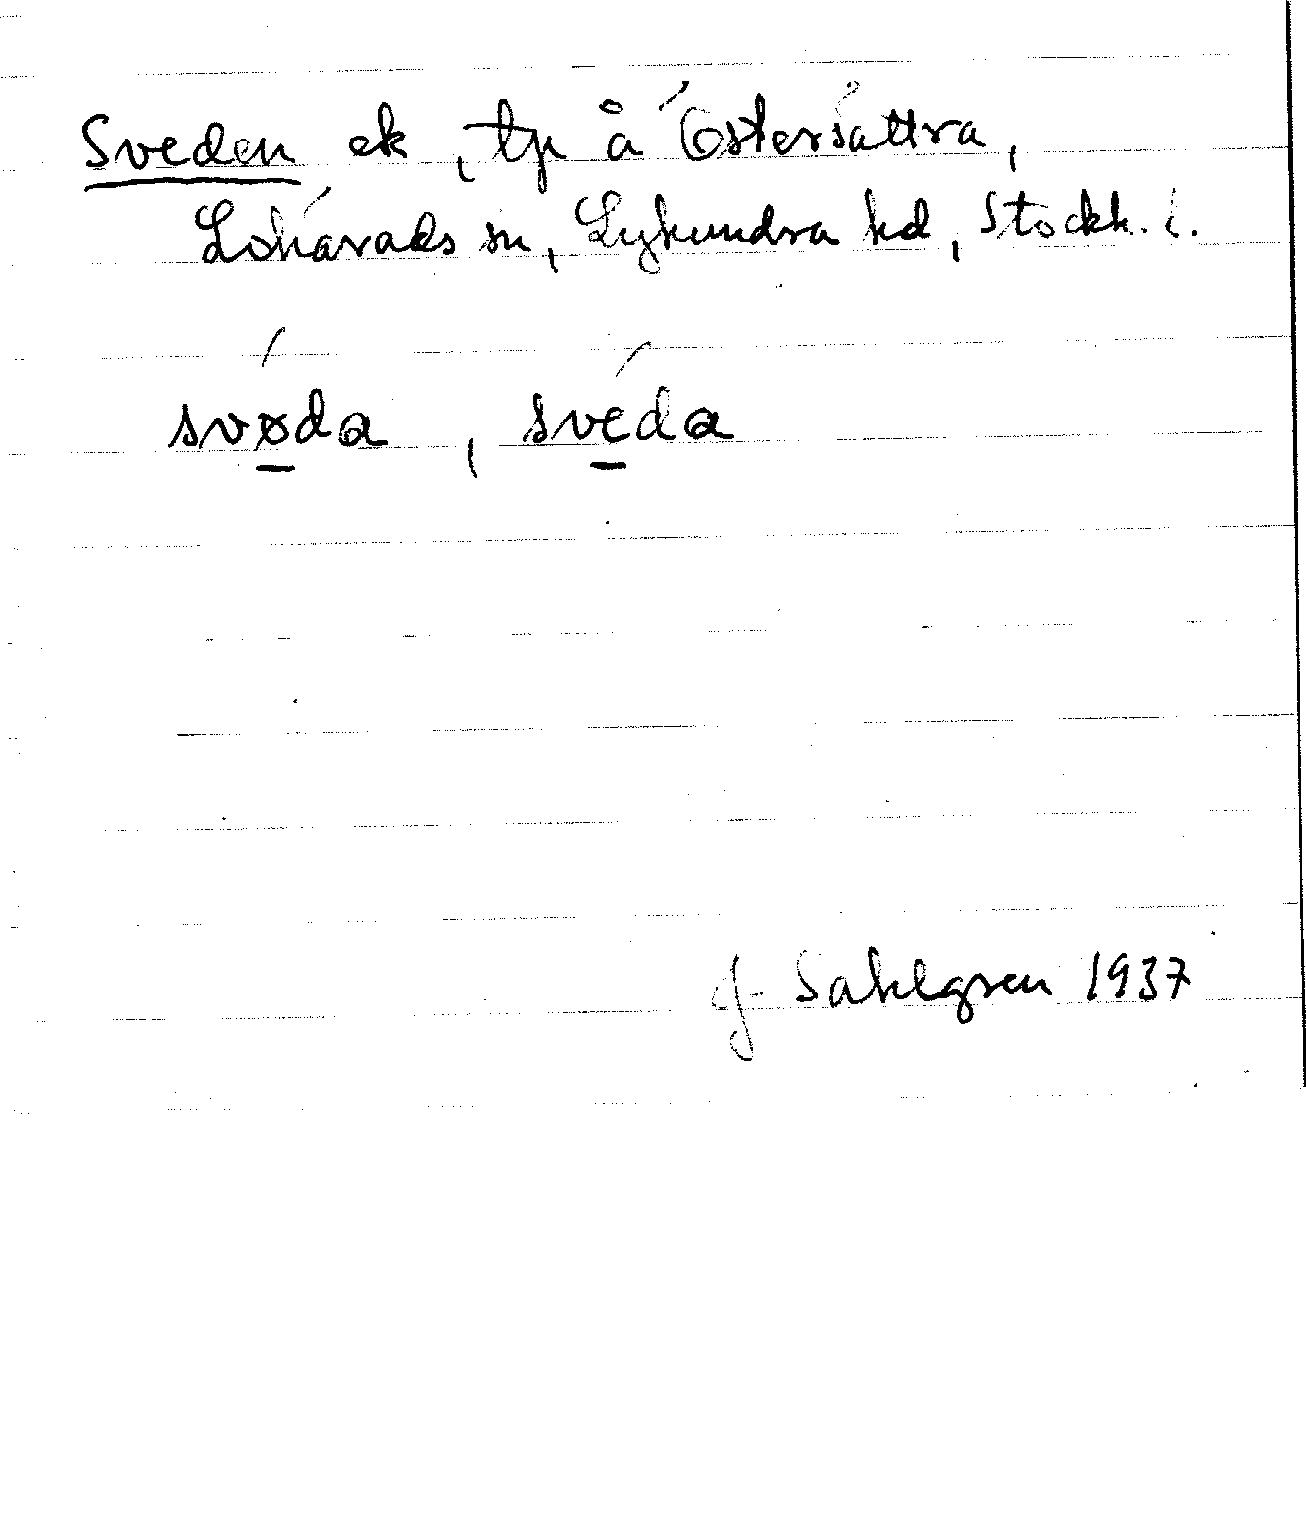 Sveden ek, tp å Östersättra,
Lohärads sn, Lyhundra hd, Stockh. l.
svǿ̱da, své̱da
J. Sahlgren 1937